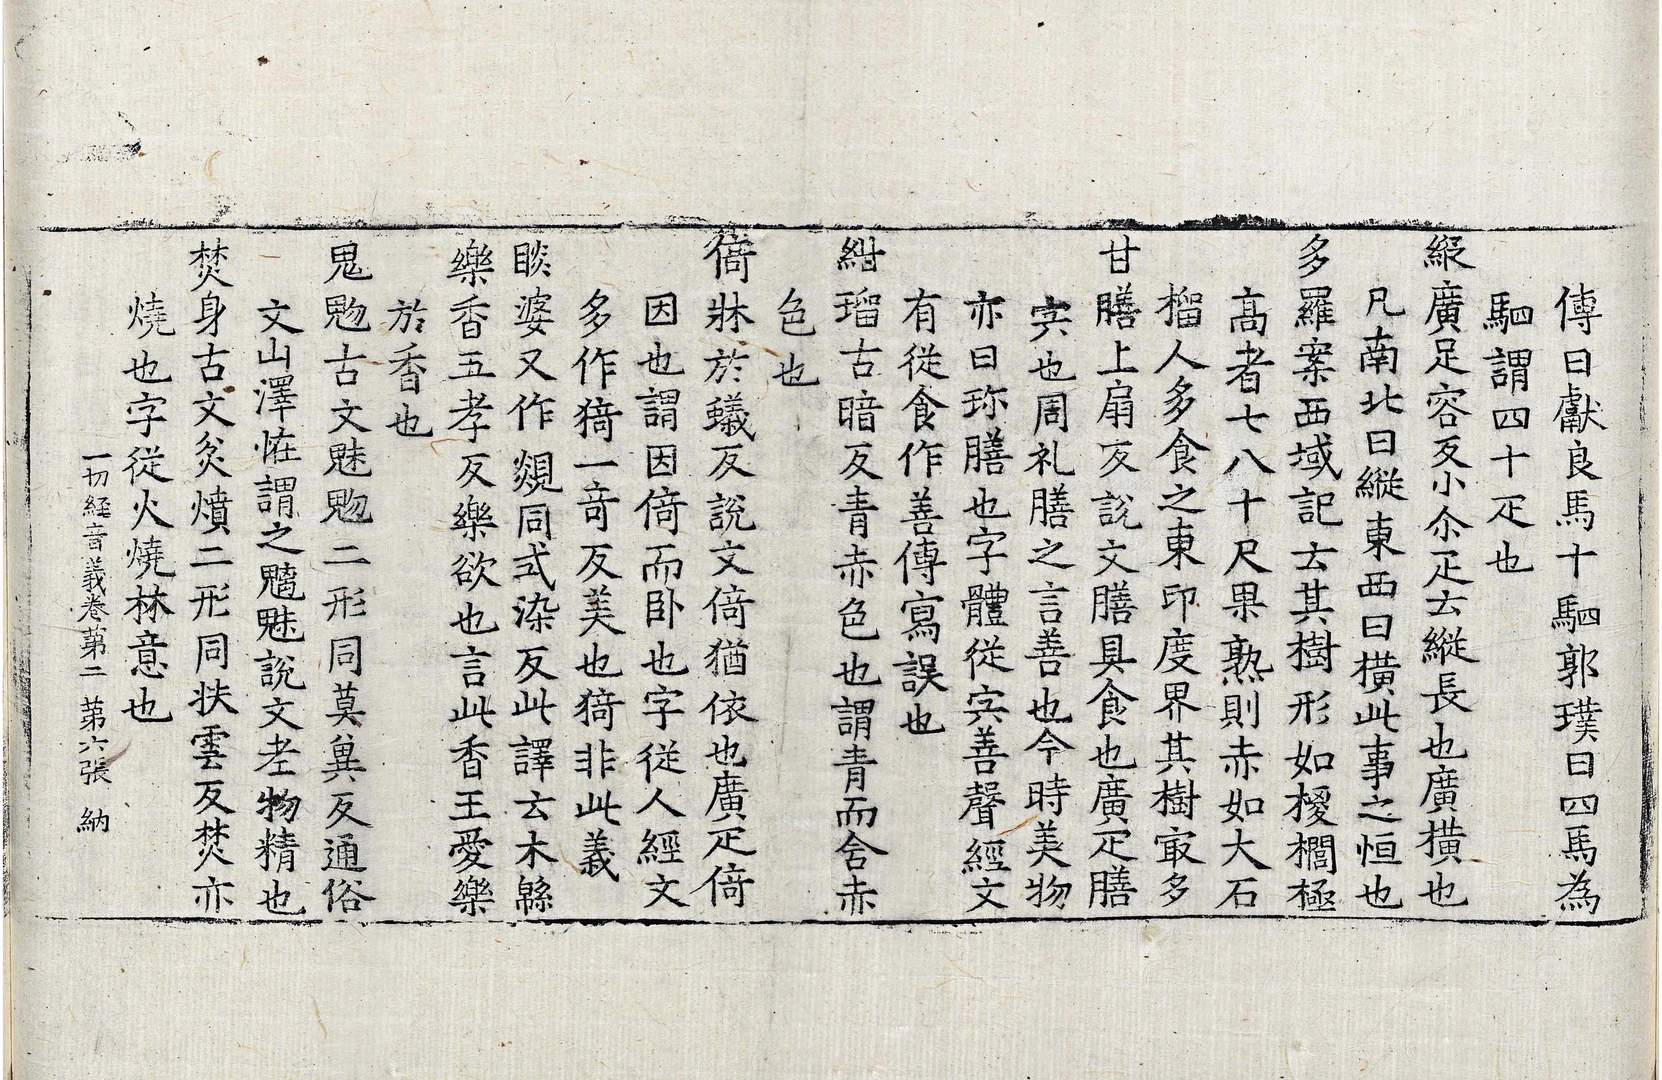 傳曰獻良馬十駟郭璞曰四馬為
駟謂四十疋也
縱廣足容反小尒疋云縱長也廣橫也
凡南北曰縱東西曰橫此事之恒也
多羅案西域記云其樹形如椶櫚極
高者七八十尺果熟則赤如大石
榴人多食之東印度界其樹㝡多
甘膳上扇反說文膳具食也廣疋膳
宍也周礼膳之言善也今時美物
亦曰珎膳也字體從宍善聲經文
有從食作善傳寫誤也
紺瑠古暗反青赤色也謂青而含赤
色也
倚牀於蟻反說文倚猶依也廣疋倚
因也謂因倚而臥也字從人經文
多作猗一奇反美也猗非此義
睒婆又作覢同式染反此譯云木緜
樂香五孝反樂欲也言此香王愛樂
於香也
鬼魅古文魅䰡二形同莫兾反通俗
文山澤恠謂之魑魅說文老物精也
焚身古文炃燌二形同扶雲反焚亦
燒也字從火燒林意也
一切經音義卷第二 第六張 納